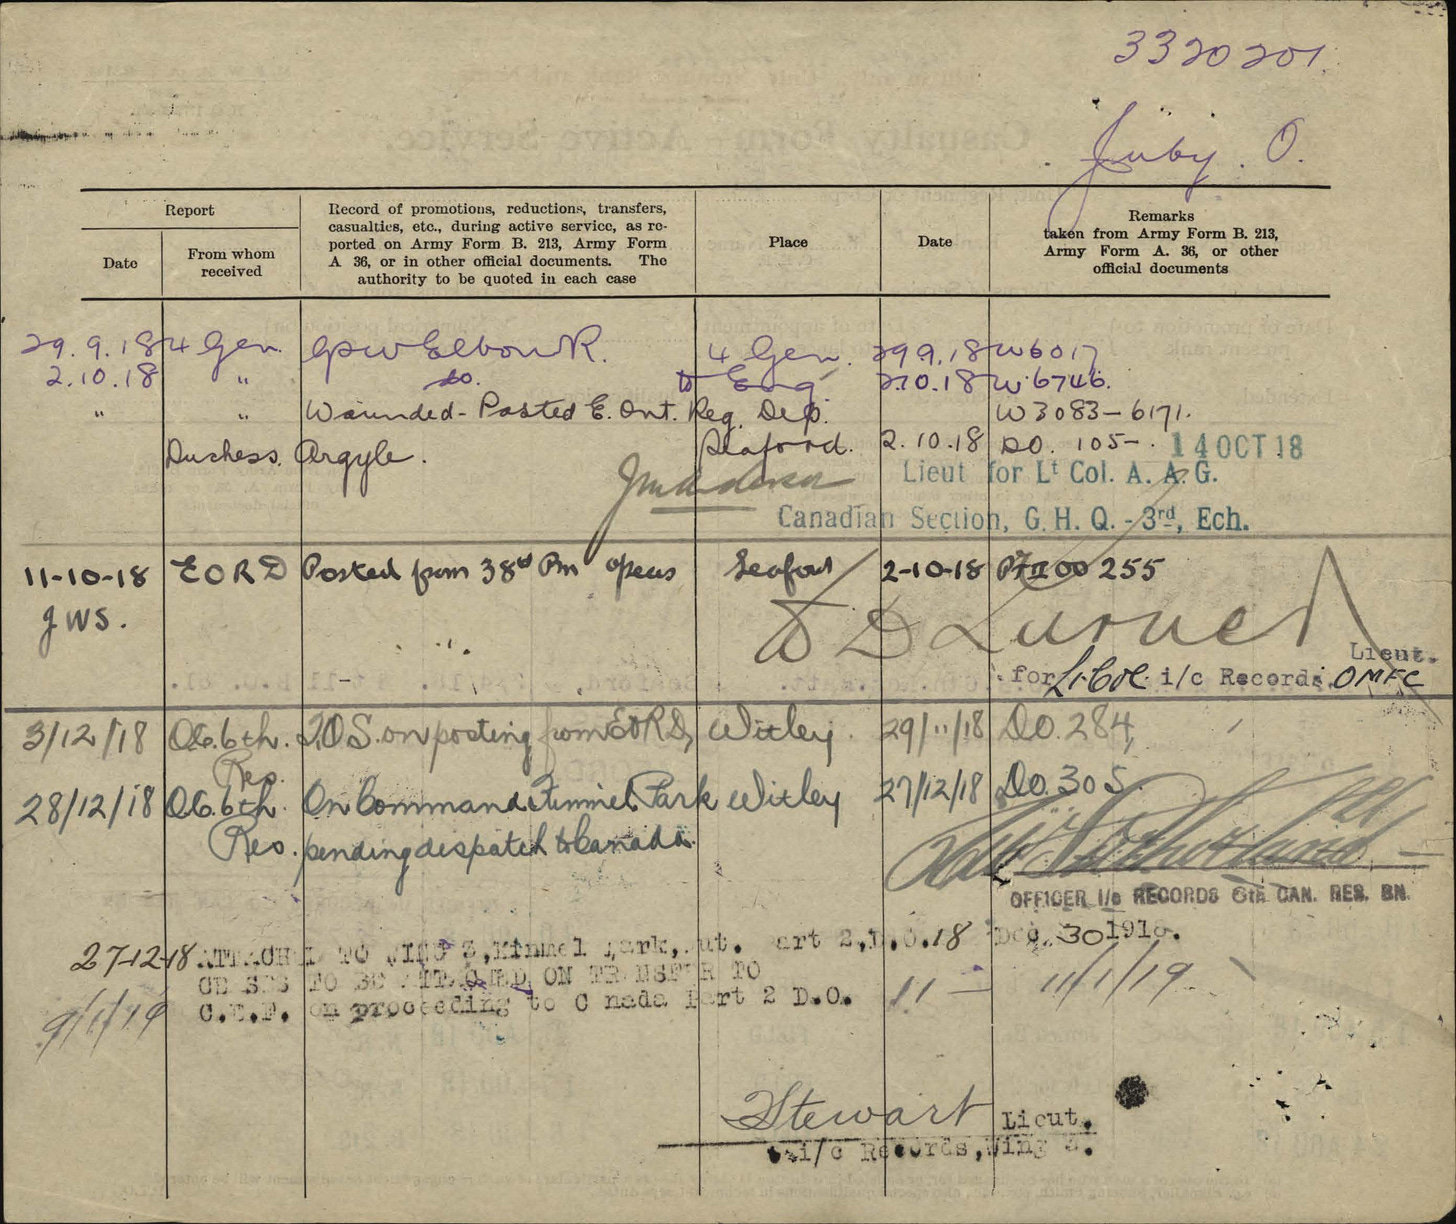 3320201.
Juby. O.
Report
Date
From whom received
Record of promotions, reductions, transfers,
casualties, etc., during active service, as re-
ported on Army Form B. 213, Army Form
A 36, or in other official documents. The
authority to be quoted in each case
Place
Date
Remarks
taken from Army Form B. 213,
Army Form A. 36, or other
official documents
29.9.18 4 Gen. GSW Elbow R. 4 Gen. 29.9.18 W6017
2.10.18 " do. to Eng 2.10.18 W6746.
" " Wounded - Posted E. Ont. Reg. Dep. W3083-6171.
Duchess Argyle. Seaford. 2.10.18 DO. 105-. 14 OCT 18
Lieut for Lt Col. A. A. G.
Canadian Section, G. H. Q. - 3rd, Ech.
11-10-18 EORD Posted from 38th Bn Seaford 2-10-18 255
JWS.
D Turner Lieut.
for Lt. Col. i/c Records. OMFC
3/12/18 OC. 6th. T.O.S. on posting from EORD, Witley. 29/11/18 DO. 284,
Res.
28/12/18 OC. 6th. On Command Kinmel Park Witley 27/12/18 DO. 305.
Res. pending despatch to Canada.
OFFICER I/c RECORDS 6th CAN. RES. BN.
27-12-18 ATTACHED TO WING 3, Kinmel Park, Part 2, D.O. 18 Dec. 30 1918.
CEASES TO BE ATTACHED ON TRANSFER TO
9/1/19 C.E.F. on proceeding to Canada Part 2 D.O. 11 - 11/1/19
Stewart Lieut.
i/c Records, Wing 3.